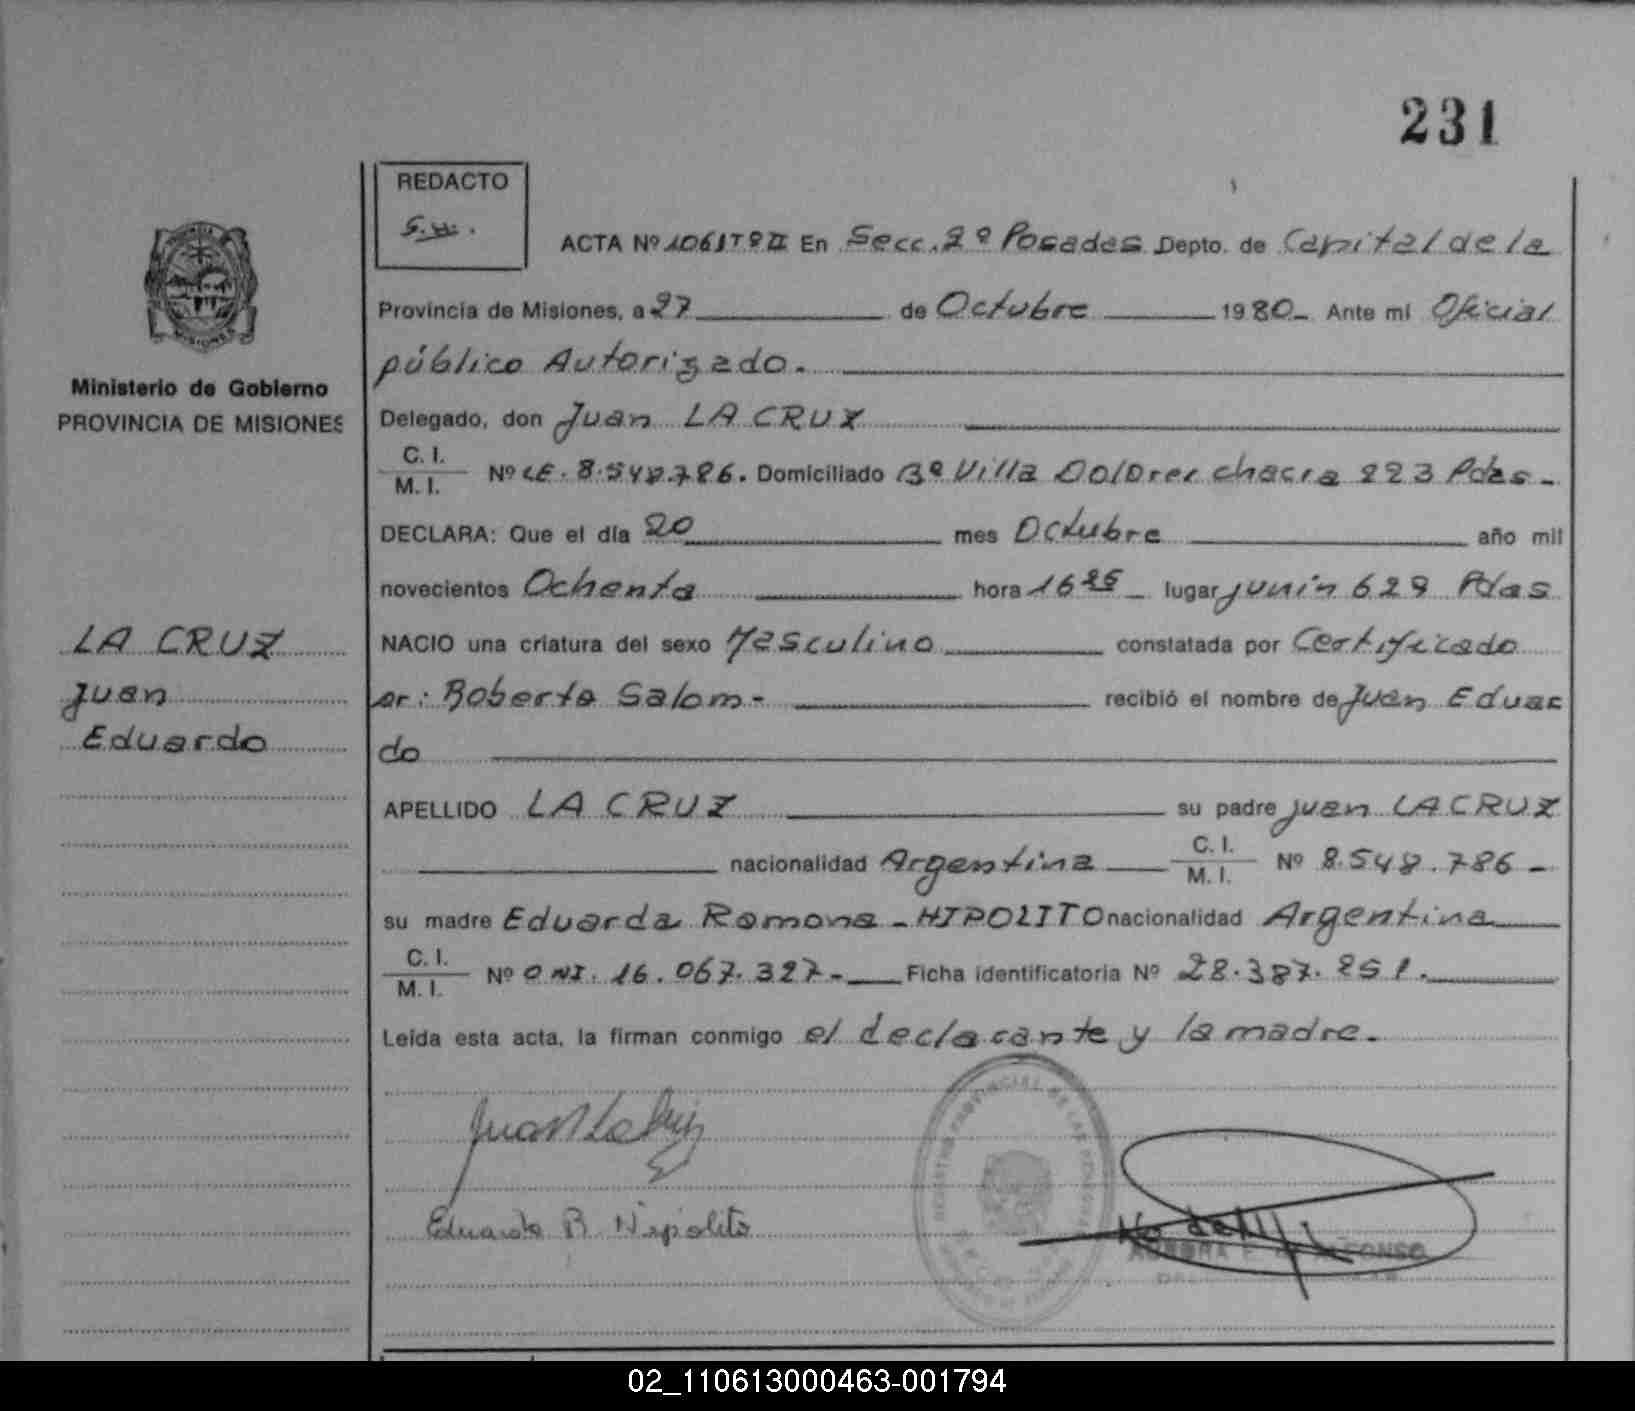 231
REDACTO
ACTA Nº 1061TºII En Secc. 2º Posadas Depto. de Capital de la
Provincia de Misiones, a 27 de Octubre 1980 - Ante mi Oficial
público Autorizado.
Ministerio de Gobierno
PROVINCIA DE MISIONES
Delegado, don Juan LA CRUZ
C. I.
M. I. Nº LE. 8.548.786. Domiciliado Bº Villa Dolores chacra 223 Pdas -
DECLARA: Que el día 20 mes Octubre año mil
novecientos Ochenta hora 16 25 - lugar junin 629 Pdas
LA CRUZ
Juan
Eduardo
NACIO una criatura del sexo Masculino constatada por Certificado
Dr: Roberto Salom - recibió el nombre de Juan Eduar
do
APELLIDO LA CRUZ su padre Juan LA CRUZ
nacionalidad Argentina C. I.
M. I. Nº 8.548.786 -
su madre Eduarda Ramona - HIPOLITO nacionalidad Argentina
C. I.
M. I. Nº DNI. 16.067.327 - Ficha identificatoria Nº 28.387.251.
Leida esta acta, la firman conmigo el declarante y la madre.
Eduarda R. Hipolito
02_110613000463-001794